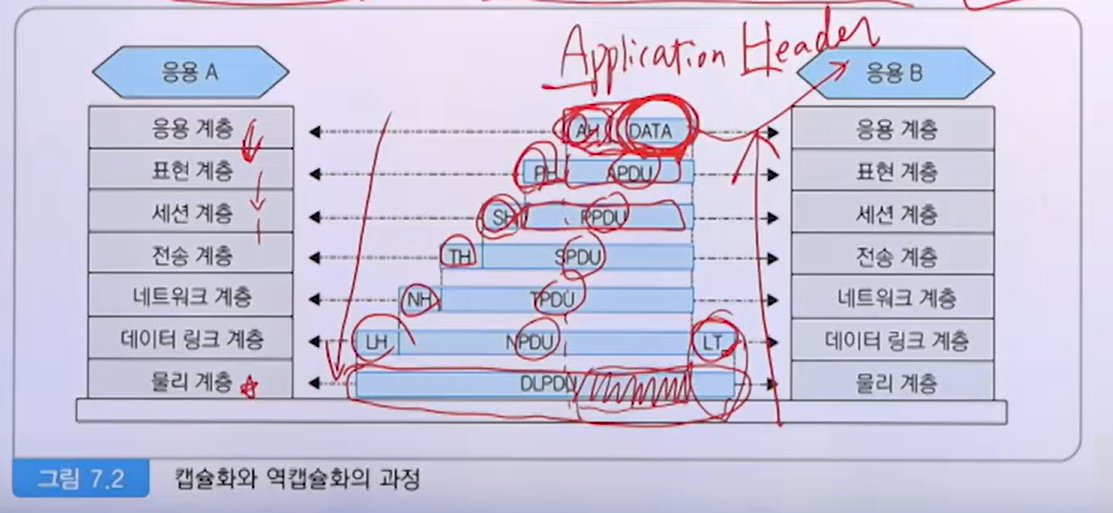 Application Header
응용 A
응용 B
응용 계층 AH DATA 응용 계층
표현 계층 PH APDU 표현 계층
세션 계층 SH PPDU 세션 계층
전송 계층 TH SPDU 전송 계층
네트워크 계층 NH TPDU 네트워크 계층
데이터 링크 계층 LH NPDU LT 데이터 링크 계층
물리 계층 DLPDU 물리 계층
그림 7.2 캡슐화와 역캡슐화의 과정